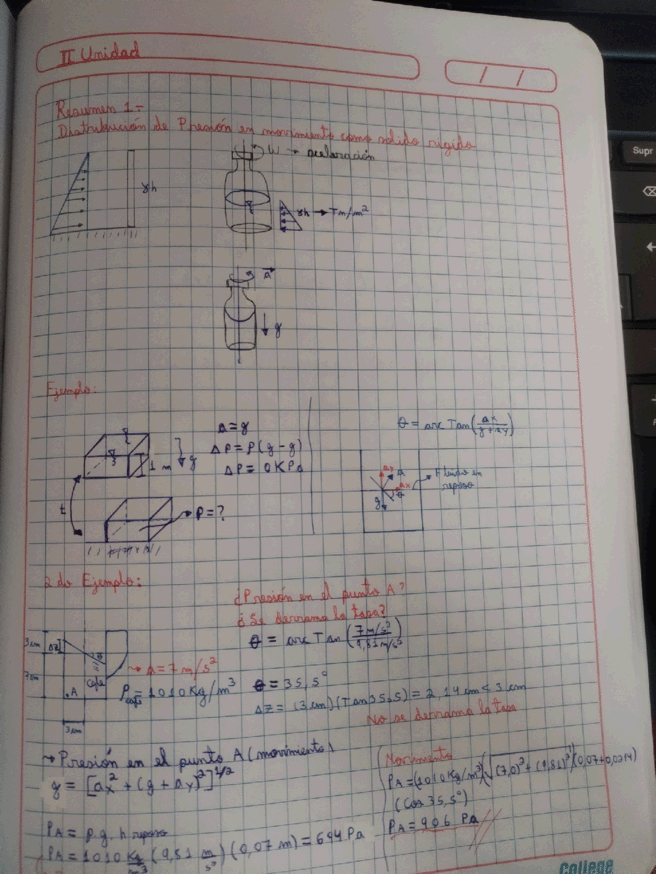 II Unidad
/ /
Supr
Resumen 1:-
Distribución de Presión en movimiento como solido rigido
W → aceleración
γh
γh → Tm/m²
g
Ejemplo:
a = g
ΔP = ρ(g - g)
ΔP = 0 KPa
1 m
g
t
P = ?
θ = arc Tan(ax/g+ay)
Fluido en
reposo
2 do Ejemplo:
¿Presión en el punto A?
¿Se derrama la taza?
θ = arc Tan(7 m/s²/9,81 m/s²)
3 cm
ΔZ
θ
7 cm
Café
A
3 cm
→ a = 7 m/s²
ρcafé = 1010 Kg/m³
θ = 35,5°
ΔZ = (3 cm)(Tan 35,5) = 2,14 cm < 3 cm
No se derrama la taza
→ Presión en el punto A (movimiento)
g = [ax² + (g + ay)²]^1/2
PA = ρ.g.h reposo
PA = 1010 Kg/m³ (9,81 m/s²)(0,07 m) = 694 Pa
Movimiento
PA = (1010 Kg/m³)(√(7,0)² + (9,81)²)(0,07+0,0214)
(Cos 35,5°)
PA = 906 Pa
College